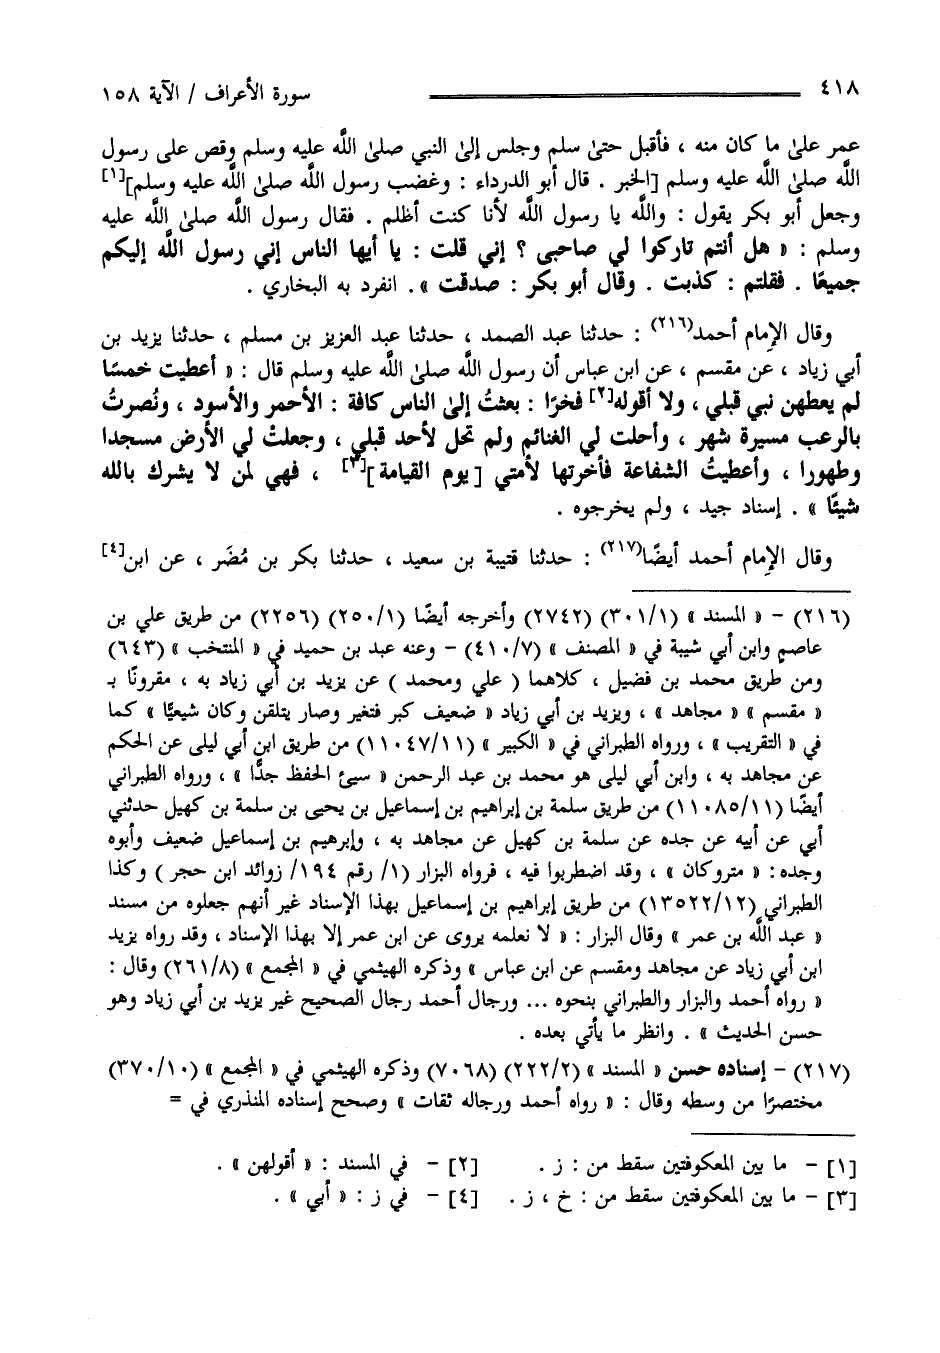 ٤١٨ سورة الأعراف / الآية ١٥٨
عمر علىٰ ما كان منه ، فأقبل حتىٰ سلم وجلس إلىٰ النبي صلىٰ اللَّه عليه وسلم وقص على رسول
اللَّه صلىٰ اللَّه عليه وسلم [الخبر . قال أبو الدرداء : وغضب رسول اللَّه صلىٰ اللَّه عليه وسلم][١]
وجعل أبو بكر يقول : واللَّه يا رسول اللَّه لأنا كنت أظلم . فقال رسول اللَّه صلىٰ اللَّه عليه
وسلم : « هل أنتم تاركوا لي صاحبي ؟ إني قلت : يا أيها الناس إني رسول اللَّه إليكم
جميعًا . فقلتم : كذبت . وقال أبو بكر : صدقت » . انفرد به البخاري .
وقال الإمام أحمد(٢١٦) : حدثنا عبد الصمد ، حدثنا عبد العزيز بن مسلم ، حدثنا يزيد بن
أبي زياد ، عن مقسم ، عن ابن عباس أن رسول اللَّه صلىٰ اللَّه عليه وسلم قال : « أعطيت خمسًا
لم يعطهن نبي قبلي ، ولا أقوله[٢] فخرًا : بعثتُ إلىٰ الناس كافة : الأحمر والأسود ، ونُصرتُ
بالرعب مسيرة شهر ، وأحلت لي الغنائم ولم تحل لأحد قبلي ، وجعلتْ لي الأرض مسجدا
وطهورا ، وأعطيتُ الشفاعة فأخرتها لأمتي [يوم القيامة][٣] ، فهي لمن لا يشرك بالله
شيئًا » . إسناد جيد ، ولم يخرجوه .
وقال الإمام أحمد أيضًا(٢١٧) : حدثنا قتيبة بن سعيد ، حدثنا بكر بن مُضَر ، عن ابن[٤]
(٢١٦) – « المسند » (٣٠١/١) (٢٧٤٢) وأخرجه أيضًا (٢٥٠/١) (٢٢٥٦) من طريق علي بن
عاصم وابن أبي شيبة في « المصنف » (٤١٠/٧) – وعنه عبد بن حميد في « المنتخب » (٦٤٣)
ومن طريق محمد بن فضيل ، كلاهما ( علي ومحمد ) عن يزيد بن أبي زياد به ، مقرونًا بـ
« مقسم » « مجاهد » ، ويزيد بن أبي زياد « ضعيف كبر فتغير وصار يتلقن وكان شيعيًّا » كما
في « التقريب » ، ورواه الطبراني في « الكبير » (١١٠٤٧/١١) من طريق ابن أبي ليلى عن الحكم
عن مجاهد به ، وابن أبي ليلى هو محمد بن عبد الرحمن « سيئ الحفظ جدًّا » ، ورواه الطبراني
أيضًا (١١٠٨٥/١١) من طريق سلمة بن إبراهيم بن إسماعيل بن يحيى بن سلمة بن كهيل حدثني
أبي عن أبيه عن جده عن سلمة بن كهيل عن مجاهد به ، وإبرهيم بن إسماعيل ضعيف وأبوه
وجده : « متروكان » ، وقد اضطربوا فيه ، فرواه البزار (١/ رقم ١٩٤/ زوائد ابن حجر ) وكذا
الطبراني (١٣٥٢٢/١٢) من طريق إبراهيم بن إسماعيل بهذا الإسناد غير أنهم جعلوه من مسند
« عبد اللَّه بن عمر » وقال البزار : « لا نعلمه يروى عن ابن عمر إلا بهذا الإسناد ، وقد رواه يزيد
ابن أبي زياد عن مجاهد ومقسم عن ابن عباس » وذكره الهيثمي في « المجمع » (٢٦١/٨) وقال :
« رواه أحمد والبزار والطبراني بنحوه ... ورجال أحمد رجال الصحيح غير يزيد بن أبي زياد وهو
حسن الحديث » . وانظر ما يأتي بعده .
(٢١٧) – إسناده حسن « المسند » (٢٢٢/٢) (٧٠٦٨) وذكره الهيثمي في « المجمع » (٣٧٠/١٠)
مختصرًا من وسطه وقال : « رواه أحمد ورجاله ثقات » وصحح إسناده المنذري في =
[١] – ما بين المعكوفتين سقط من : ز . [٢] – في المسند : « أقولهن » .
[٣] – ما بين المعكوفتين سقط من : خ ، ز . [٤] – في ز : « أبي » .